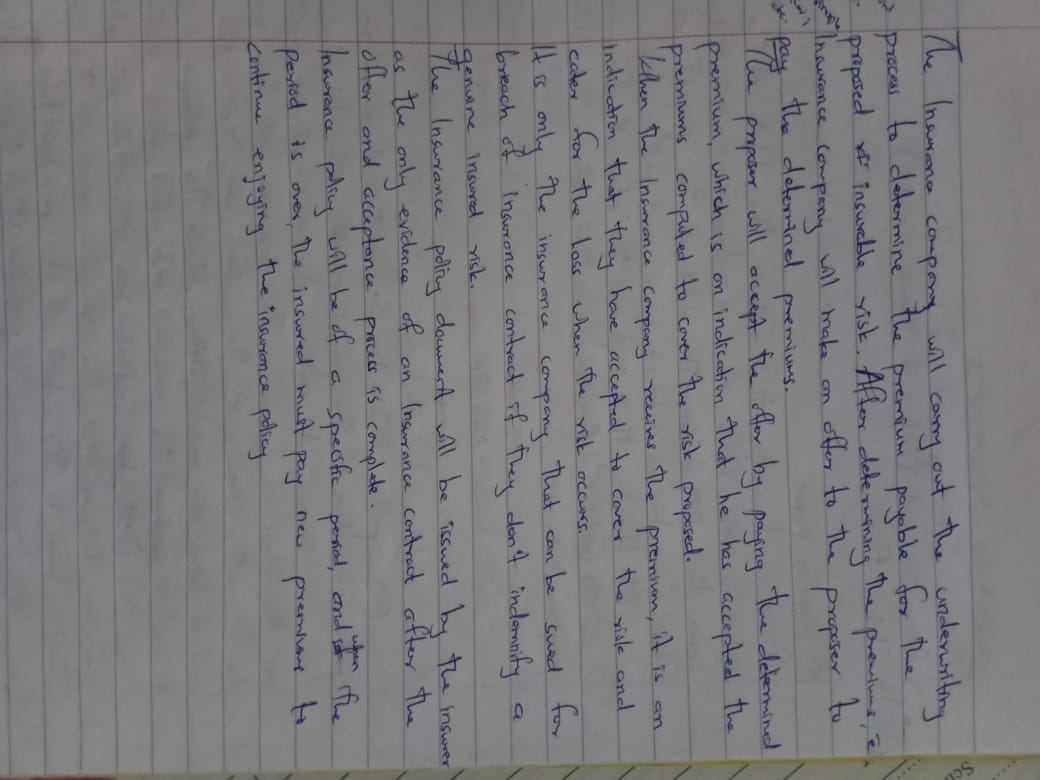 The Insurance company will carry out the underwriting
process to determine the premium payable for the
proposed insurable risk. After determining the premiums,
Insurance company will make an offer to the proposer to
pay the determined premiums.
The proposer will accept the offer by paying the determined
premium, which is an indication that he has accepted the
premiums computed to cover the risk proposed.
When the Insurance company receives the premium, it is an
indication that they have accepted to cover the risk and
cater for the loss when the risk occurs.
It is only the insurance company that can be sued for
breach of insurance contract if they don't indemnify a
genuine insured risk.
The Insurance policy document will be issued by the insurer
as the only evidence of an Insurance contract after the
offer and acceptance process is complete.
Insurance policy will be of a specific period, and when the
period is over, the insured must pay new premiums to
continue enjoying the insurance policy